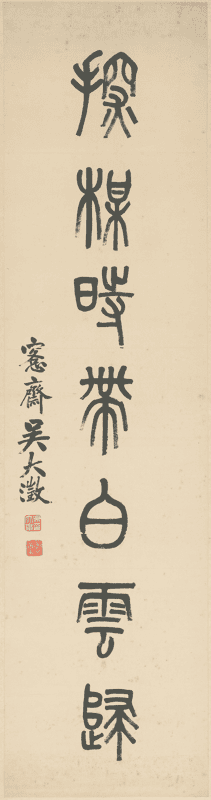 探楳時帶白雲歸
愙齋吳大澂